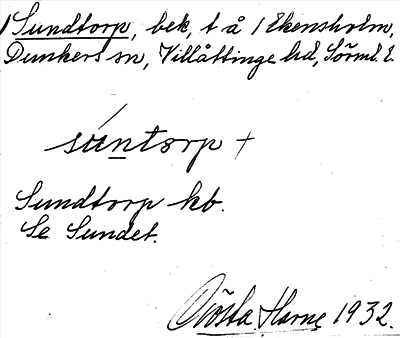 Sundtorp, bek, t å / Ekensholm,
Dunkers sn, Villåttinge hd, Sörml. l.
súntorp +
Sundtorp kb.
Se Sundet.
Gösta 1932.